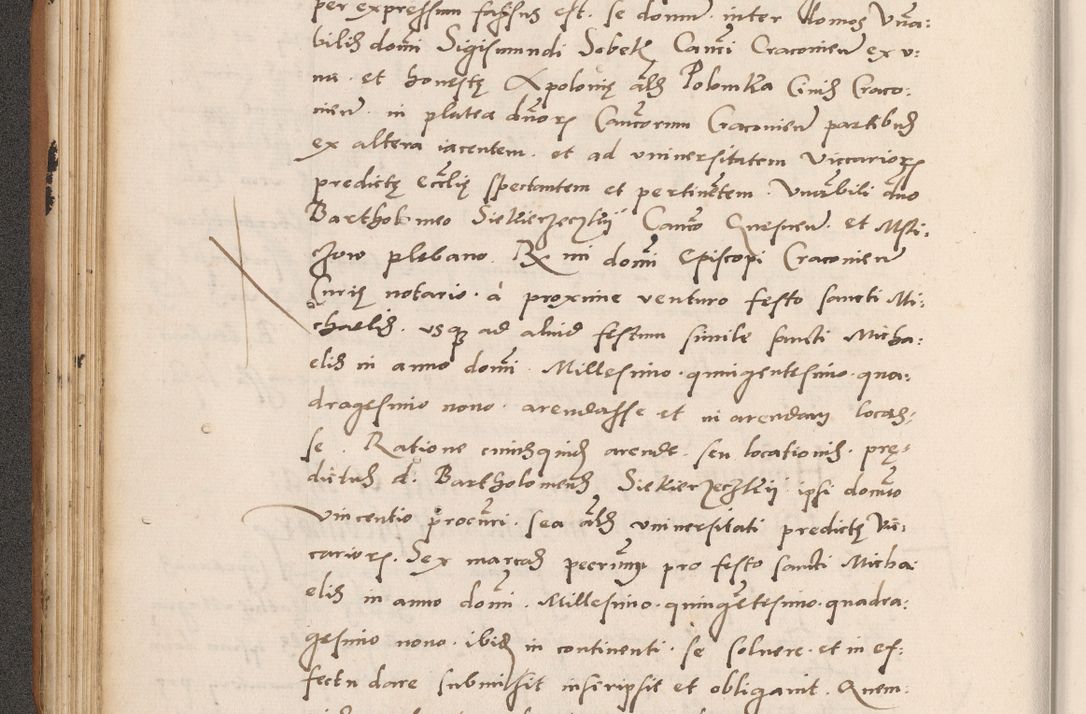 per expressum fassus est. se domum inter domos Vnera:
bilis domi Sigismundi Sobek Canci Cracouien ex v:
na. et honestę Apolonię als Polomka Ciuis Craco:
uien. in platea dnorꝝ Cancorum Cracouien partibus
ex altera iacentem. et ad vniuersitatem Viccariorꝝ
predictę Eccłię spectantem et pertinetem Vnerabili dno
Bartholomeo Siekierzeczkij Canco Gnesnen. et Msti:
czow plebano. R mi domi Episcopi Cracouien
Curię notario. a proxime venturo festo sancti Mi:
chaelis. vsqꝫ ad aliud festum simile sancti Micha:
elis in anno domi. Millesimo. quingentesimo. qua:
dragesimo nono. arendasse et in arendam locas:
se. Ratione cuiusquid arende. seu locationis. prę:
dictus d. Bartholomeus Siekierzeczkij ipsi domino
Vincentio procuri. sea als vniuersitati predictę Vic:
cariorꝝ. Sex marcas pecunię pro festo sancti Micha:
elis in anno domi. Millesimo. quingetesimo. quadra:
gesimo nono. ibiqꝫ in continenti. se soluere. et in ef:
fectu dare submisit inscripsit et obligauit. Quem: